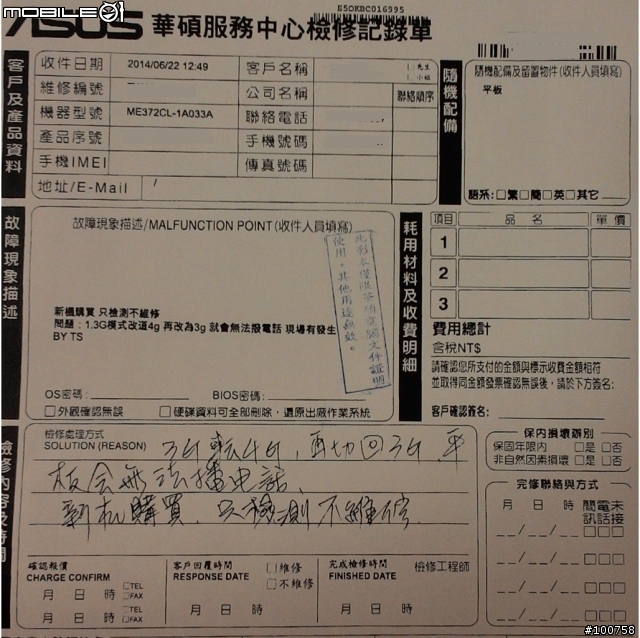 MOBILE01
E5OKBC016995
ASUS 華碩服務中心檢修記錄單
客戶及產品資料
收件日期 2014/06/22 12:49 客戶名稱 □先生 □小姐
維修編號 公司名稱 聯絡順序
機器型號 ME372CL-1A033A 聯絡電話
產品序號 手機號碼
手機IMEI 傳真號碼
地址/E-Mail
隨機配備
隨機配備及留置物件(收件人員填寫)
平板
語系:□繁□簡□英□其它
故障現象描述
故障現象描述/MALFUNCTION POINT(收件人員填寫)
此影本僅限華碩
使用,其他用途無效。
新機購買 只檢測不維修
問題:1.3G模式改道4g 再改為3g 就會無法撥電話 現場有發生
BY TS
OS密碼: BIOS密碼:
□外觀確認無誤 □硬碟資料可全部刪除,還原出廠作業系統
耗用材料及收費明細
項目 品名 單價
1
2
3
費用總計
含稅NT$
請確認您所支付的金額與標示收費金額相符
並取得同金額發票確認無誤後,請於下方簽名:
客戶確認簽名:
檢修內容及時間
檢修處理方式
SOLUTION (REASON) 3G轉4G,再切回3G 平
板會無法播電話.
新机購買.只檢測不維修.
保內損壞辦別
保固年限內 □是□否
非自然因素損壞 □是□否
完修聯絡與方式
月 日 時 簡訊 電話 未接
__/__/__ □□□
__/__/__ □□□
__/__/__ □□□
__/__/__ □□□
確認報價 客戶回覆時間 □維修 完成檢修時間 檢修工程師
CHARGE CONFIRM RESPONSE DATE □不維修 FINISHED DATE
月 日 時 □TEL □FAX
月 日 時 □TEL □FAX
月 日 時
月 日 時
#100758